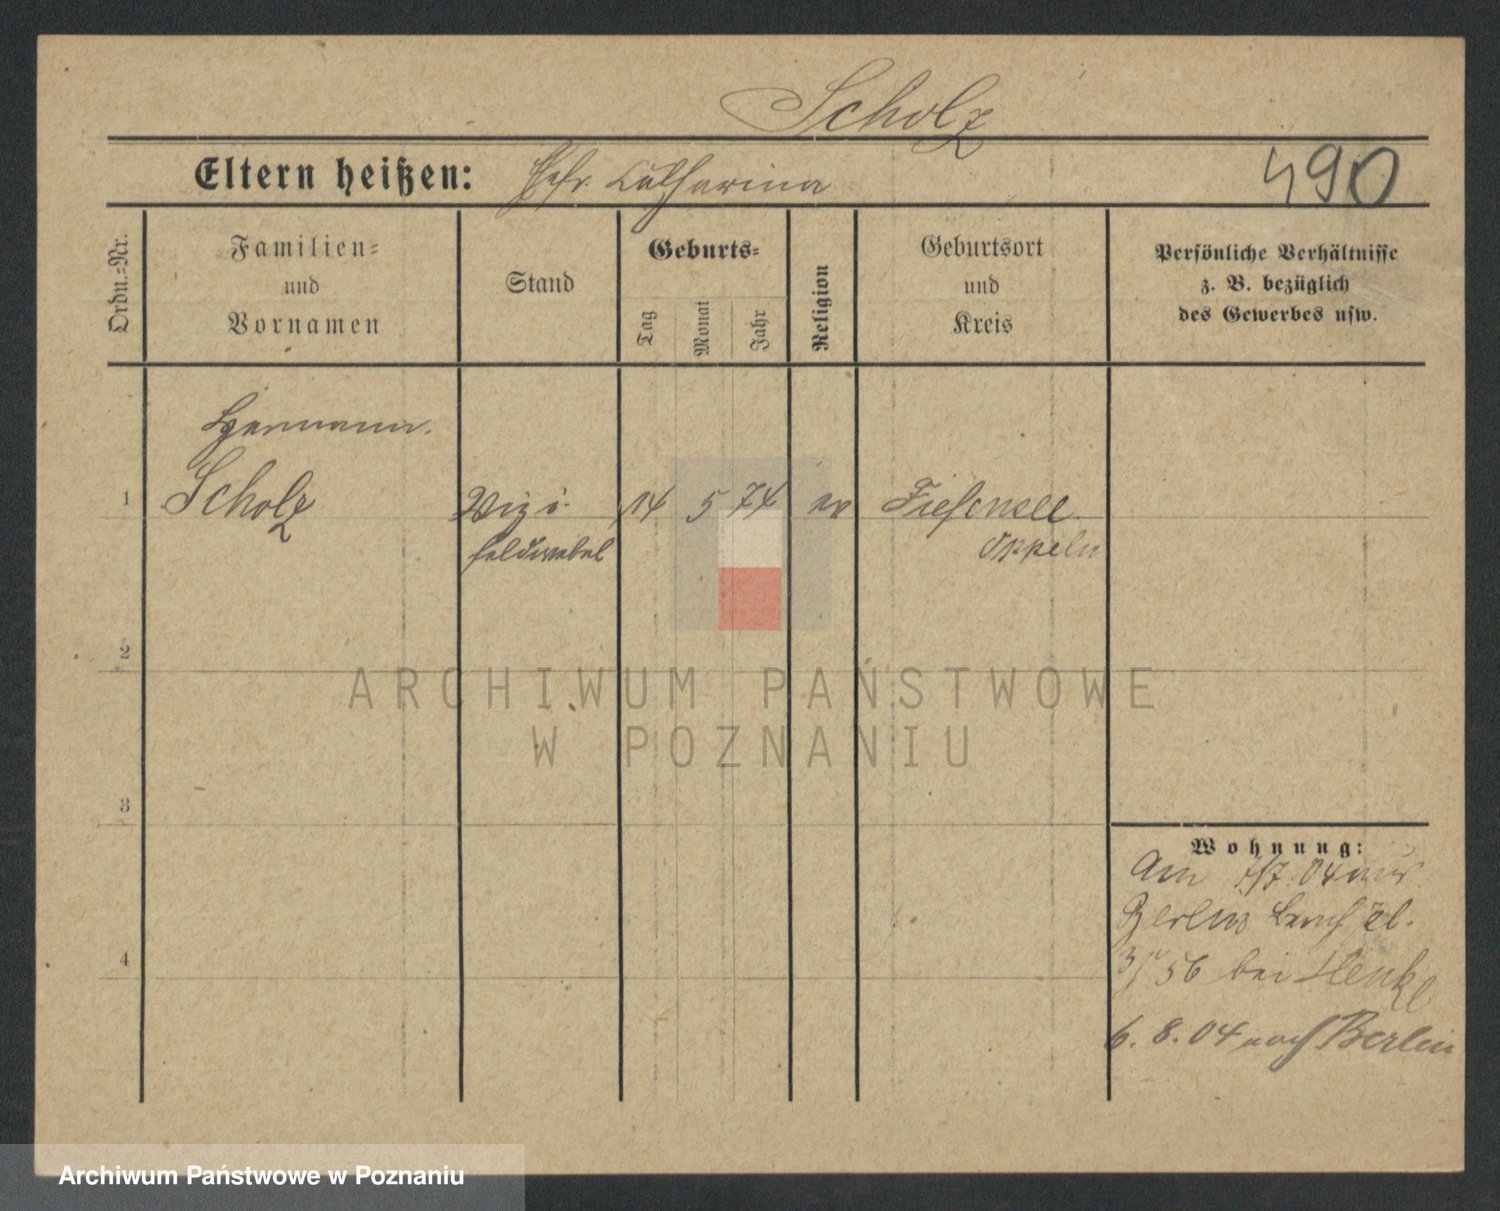 Scholz
Eltern heißen: Catharina
490
Ordn.-Nr.
Familien-
und
Vornamen
Stand
Geburts-
Tag
Monat
Jahr
Religion
Geburtsort
und
Kreis
Persönliche Verhältnisse
z. B. bezüglich
des Gewerbes usw.
Hermann.
1 Scholz Vizi 14 5 74 ev
feldwebel Oppeln
2
3
4
Wohnung:
Am 04 aus
Berlin
56 bei Henkl
6. 8. 04 nach Berlin
ARCHIWUM PAŃSTWOWE
W POZNANIU
Archiwum Państwowe w Poznaniu